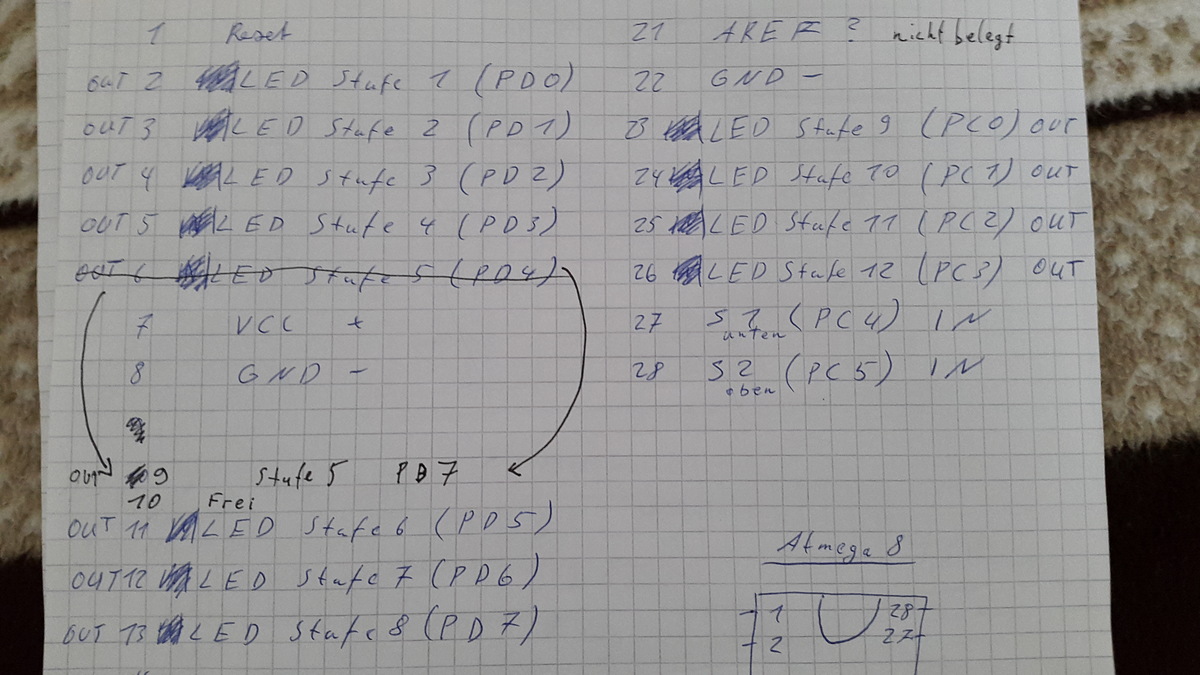 1 Reset
OUT 2 LED Stufe 1 (PD0)
OUT 3 LED Stufe 2 (PD1)
OUT 4 LED Stufe 3 (PD2)
OUT 5 LED Stufe 4 (PD3)
OUT 6 LED Stufe 5 (PD4)
7 VCC +
8 GND -
OUT 9 Stufe 5 PD7
10 Frei
OUT 11 LED Stufe 6 (PD5)
OUT 12 LED Stufe 7 (PD6)
OUT 13 LED Stufe 8 (PD7)
21 AREF ? nicht belegt
22 GND -
23 LED Stufe 9 (PC0) OUT
24 LED Stufe 10 (PC1) OUT
25 LED Stufe 11 (PC2) OUT
26 LED Stufe 12 (PC3) OUT
27 S1 (PC4) IN
unten
28 S2 (PC5) IN
oben
Atmega 8
1 28
2 27